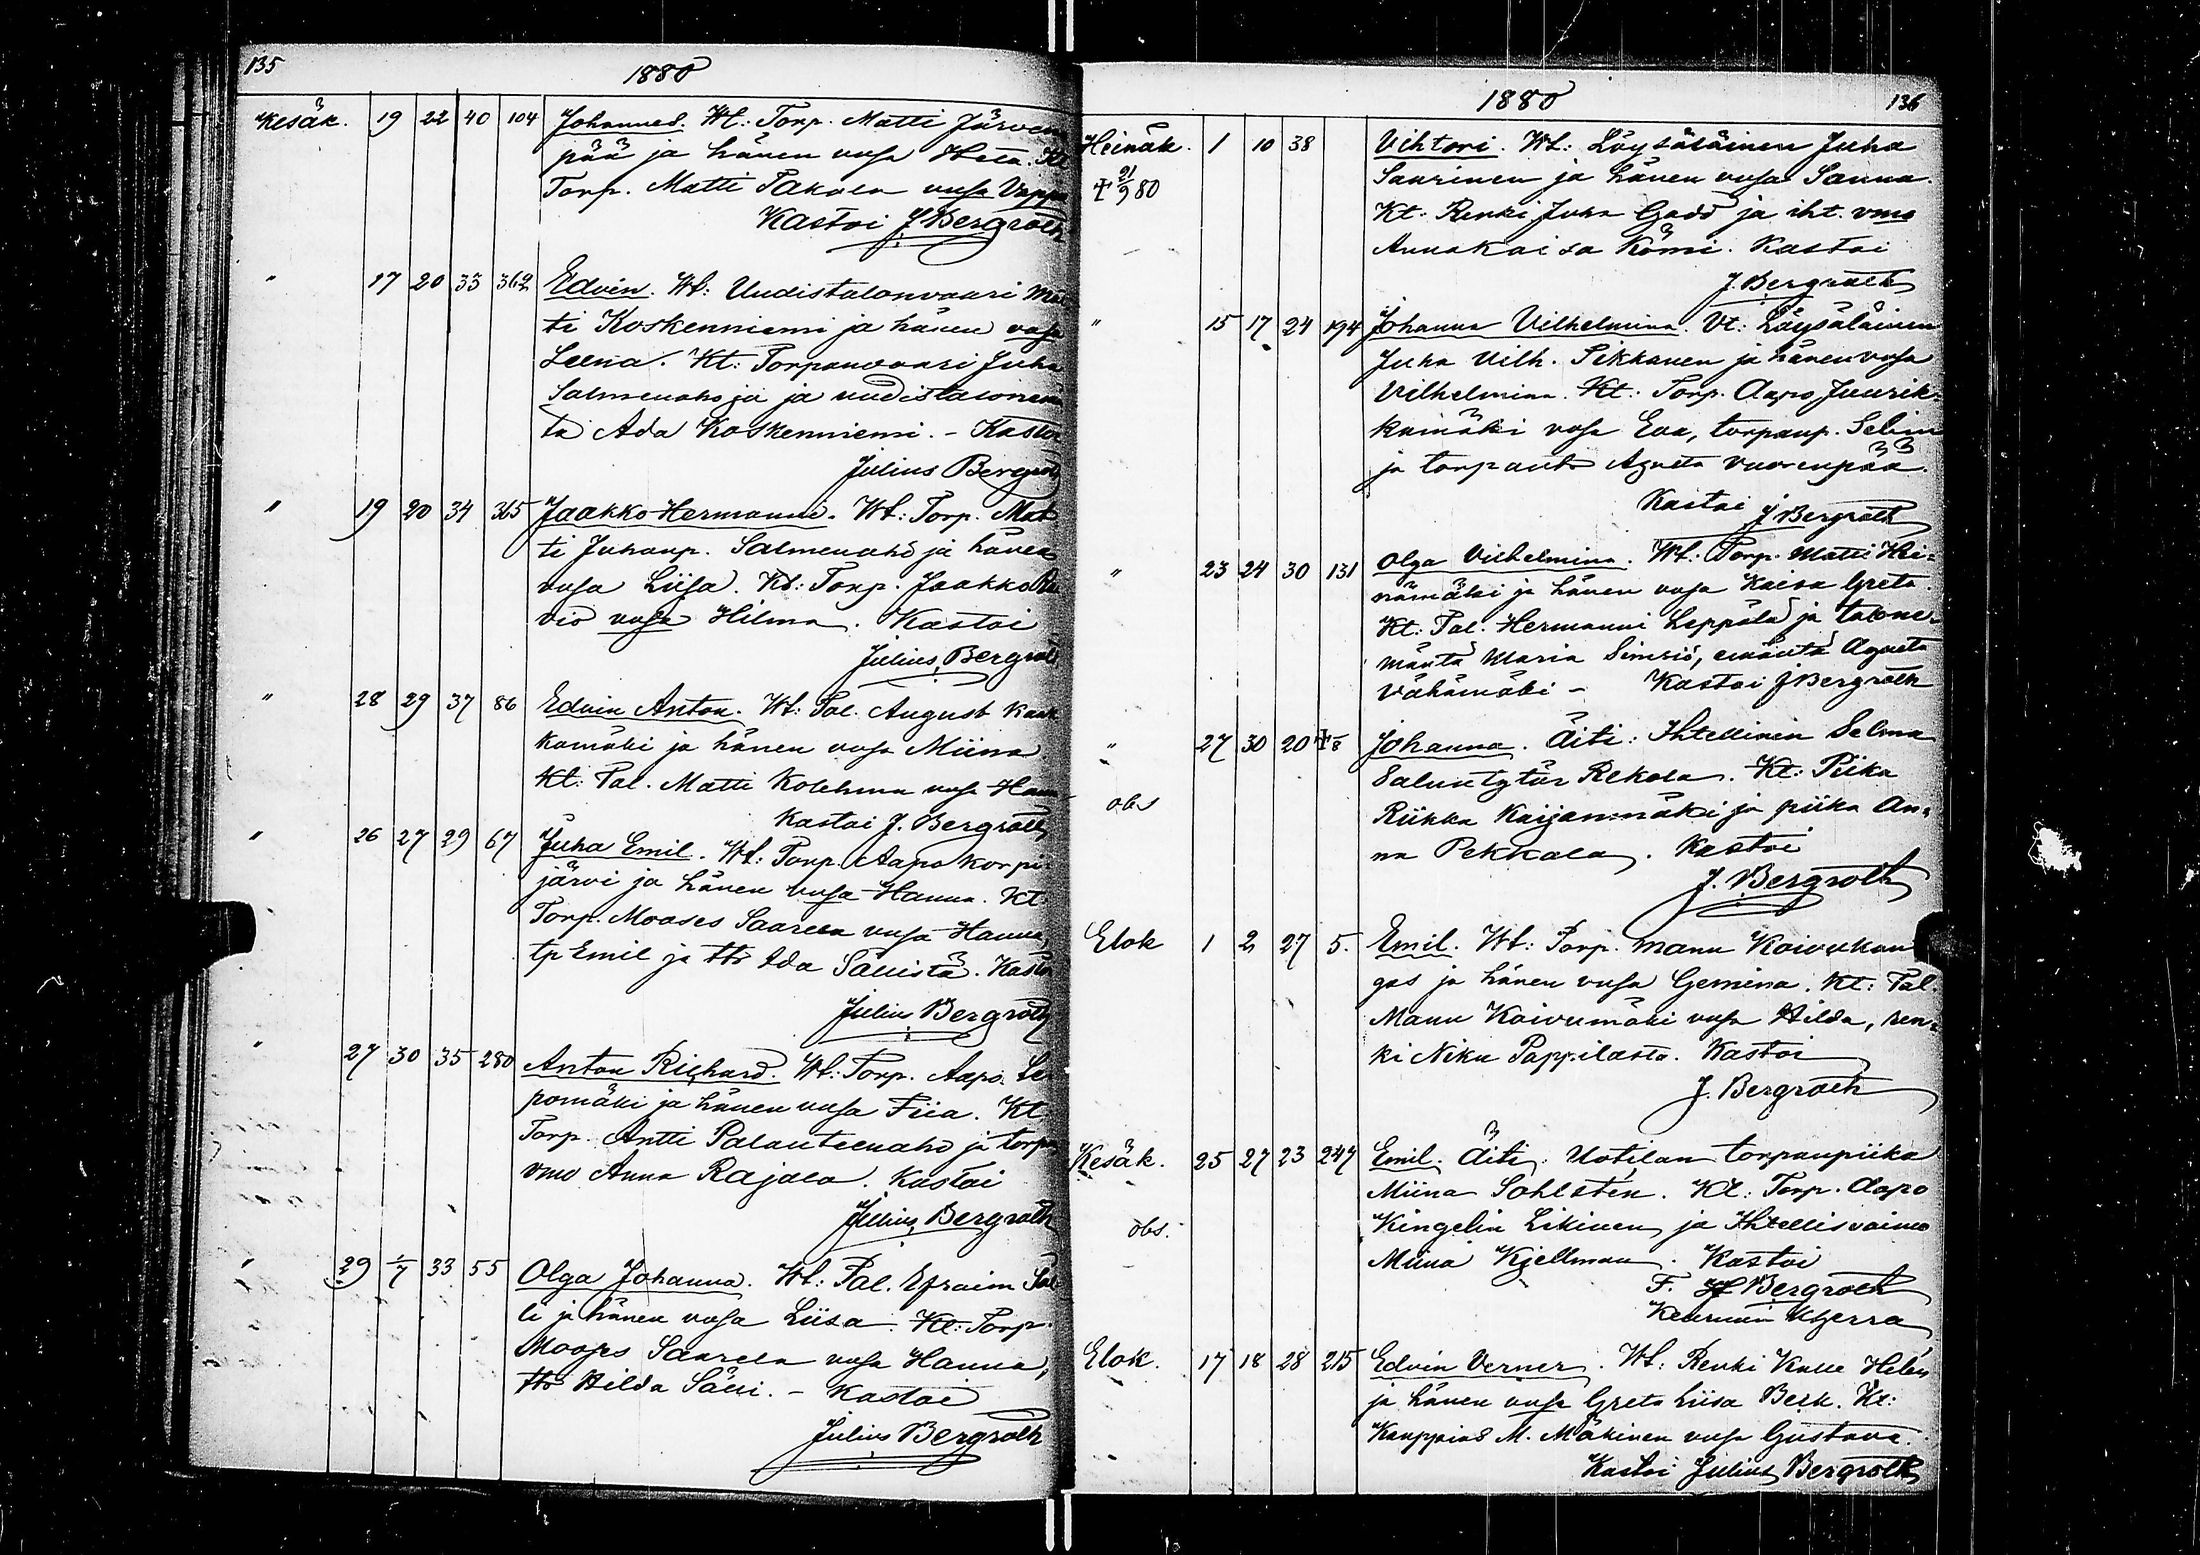 135
1880
Kesäk. 19 22 40 104 Johannes. Wt: Torp. Matti Järven
pää ja hänen vusa Heta. Kt
Torp. Matti Takala vusa Vappu
Kastoi J Bergroth
" 17 20 33 362 Edvin. Wt: Uudistalonvaari Mat
ti Koskenniemi ja hänen vusa
Leena. Kt: Torpanvaari Juha
Salmenaho ja ja uudistalonemän
tä Ada Koskenniemi. - Kastoi
Julius Bergroth
" 19 20 34 365 Jaakko Hermanni. Wt: Torp. Mat
ti Juhanp. Salmenaho ja hänen
vusa Liisa. Kt: Torp. Jaakko
vio vusa Hilma. Kastoi
Julius Bergroth
" 28 29 37 86 Edvin Anton. Wt: Tal. August
kamäki ja hänen vusa Miina.
Kt: Tal. Matti Kolehma vusa Hanna
Kastoi J. Bergroth
" 26 27 29 67 Juha Emil. Wt: Torp. Aapo Korpi
järvi ja hänen vusa Hanna. Kt:
Torp. Mooses Saarela vusa Hanna,
tp Emil ja ttr Ida Sällistä. Kastoi
Julius Bergroth
" 27 30 35 280 Anton Richard. Wt: Torp. Aapo
pomäki ja hänen vusa Fiia. Kt
Torp. Antti Palanteenaho ja torp
vmo Anna Rajala. Kastoi
Julius Bergroth
" 29 1/7 33 55 Olga Johanna. Wt: Tal. Efraim Säl
li ja hänen vusa Liisa. Kt: Torp.
Mooses Saarela vusa Hanna,
ttr Hilda Sälli. - Kastoi
Julius Bergroth
1880
136
Heinäk. 1 10 38 Vihtori. Wt: Löysäläinen Juha
✝ 21/9 80 Saurinen ja hänen vusa Sanna.
Kt: Renki Juha Gadd ja iht. vmo
Annakaisa Kömi. Kastoi
J. Bergroth
" 15 17 24 194 Johanna Vilhelmina. Vt: Löysäläinen
Juha Vilh. Sikkanen ja hänen vusa
Vilhelmina. Kt: Torp. Aapo Juurik-
kamäki vusa Eva, torpanp. Selim
ja torpantr Agneta Vuorenpää.
Kastoi J Bergroth
" 23 24 30 131 Olga Vilhelmina. Wt: Torp. Matti
nämäki ja hänen vusa Kaisa Greta.
Kt: Tal. Hermanni Leppälä ja talone-
mäntä Maria Simsiö, emäntä Agneta
Vähämäki - Kastoi J Bergroth
" 27 30 20 ✝ Johanna. Äiti: Ihtellinen Selma
Saluntytär Rekola. Kt: Piika
obs Riikka Kaijanmäki ja piika An-
na Pekkala. Kastoi
J. Bergroth
Elok 1 2 27 5. Emil. Wt: Torp. Manu Koivukan
gas ja hänen vusa Gemina. Kt: Tal.
Manu Koivumäki vusa Hilda, ren-
ki Niku Pappilasta. Kastoi
J. Bergroth
Kesäk. 25 27 23 247 Emil. Äiti: Uotilan torpanpiika
Miina Sohlsten. Kt: Torp. Aapo
obs. Kingelin Likinen ja Ihtellisvaimo
Miina Kjellman. Kastoi
F. H Bergroth
Elok. 17 18 28 215 Edvin Verner. Wt: Renki Kalle Helén
ja hänen vusa Greta Liisa Berk. Kt:
Kauppias M. Mäkinen vusa Gustava.
Kastoi Julius Bergroth